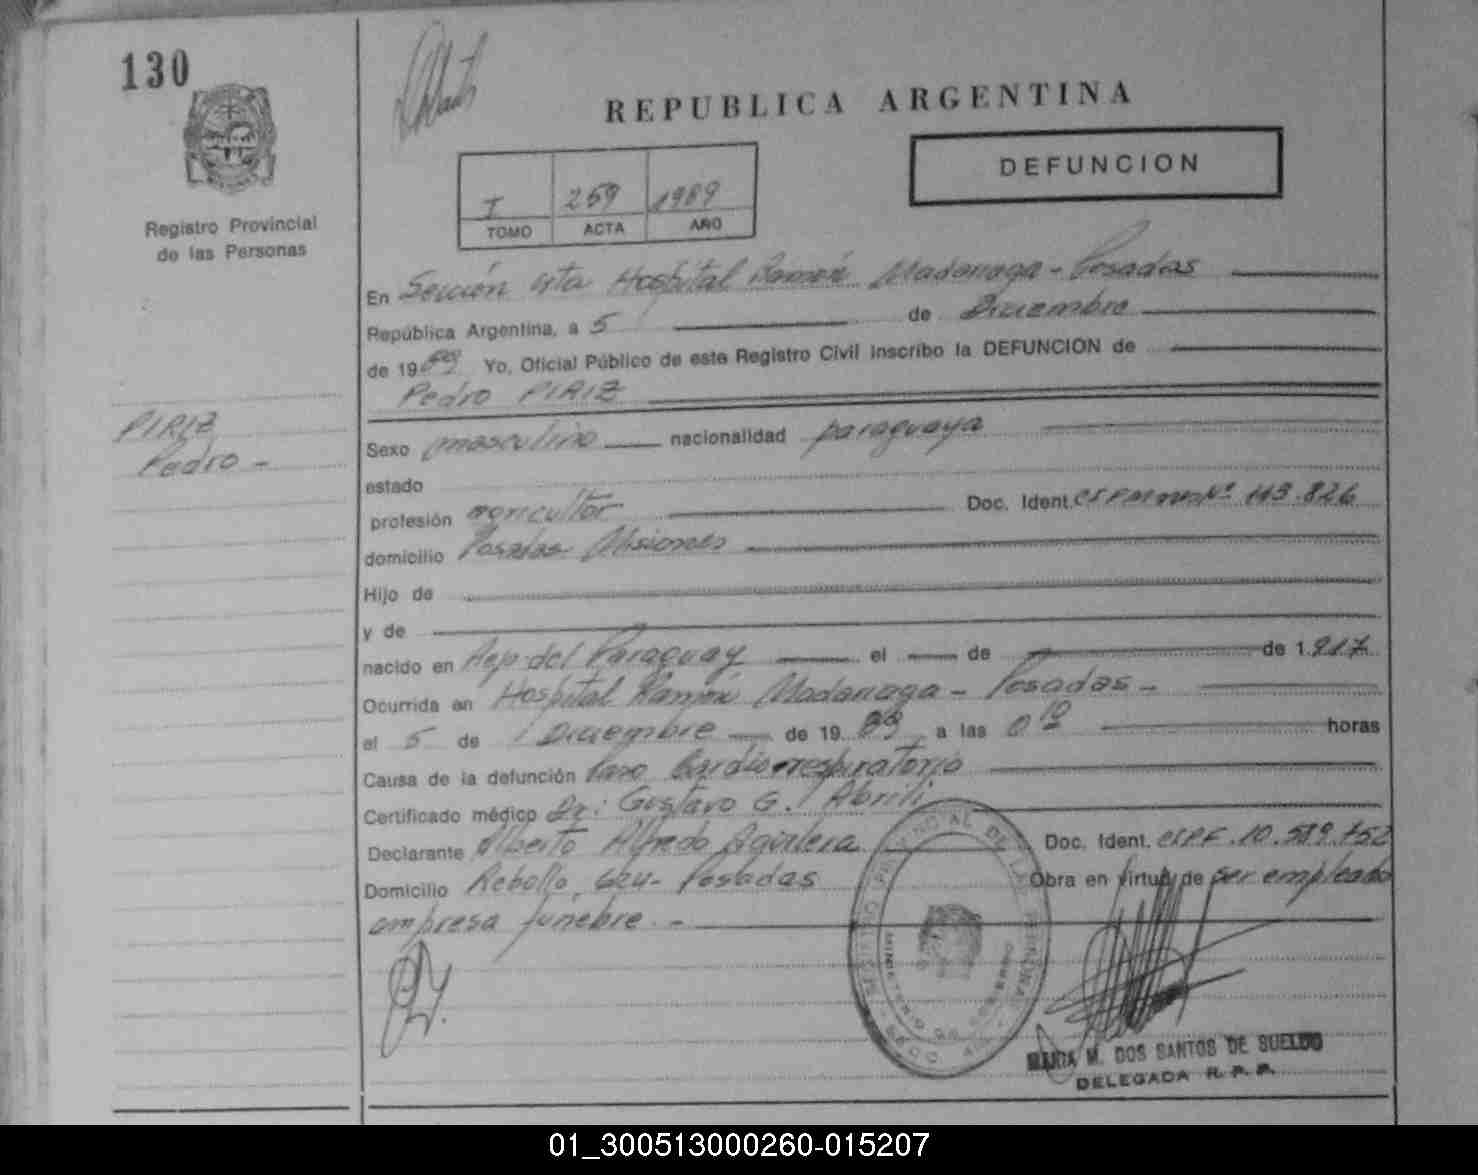 130
REPUBLICA ARGENTINA
DEFUNCION
I 259 1989
TOMO ACTA AÑO
Registro Provincial
de las Personas
En Sección 4ta Hospital Ramón Madariaga - Posadas
República Argentina, a 5 de Diciembre
de 1989 Yo, Oficial Público de este Registro Civil inscribo la DEFUNCION de
Pedro PIRIZ
PIRIZ
Pedro -
Sexo masculino nacionalidad paraguaya
estado
profesión agricultor Doc. Ident. Nº 113.826
domicilio Posadas Misiones
Hijo de
y de
nacido en Rep. del Paraguay el de de 1.917
Ocurrida en Hospital Ramón Madariaga - Posadas -
el 5 de Diciembre de 19 89 a las 0 10 horas
Causa de la defunción Paro Cardiorrespiratorio
Certificado médico Dr: Gustavo G. Abrili
Declarante Alberto Alfredo Aguilera Doc. Ident. CIPF. 10.589.752
Domicilio Rebollo, 624- Posadas Obra en virtud de ser empleado
empresa fúnebre. -
REGISTRO PROVINCIAL DE LAS PERSONAS
MINISTERIO DE GOBIERNO
MARIA M. DOS SANTOS DE SUELDO
DELEGADA R. P. P.
01_300513000260-015207